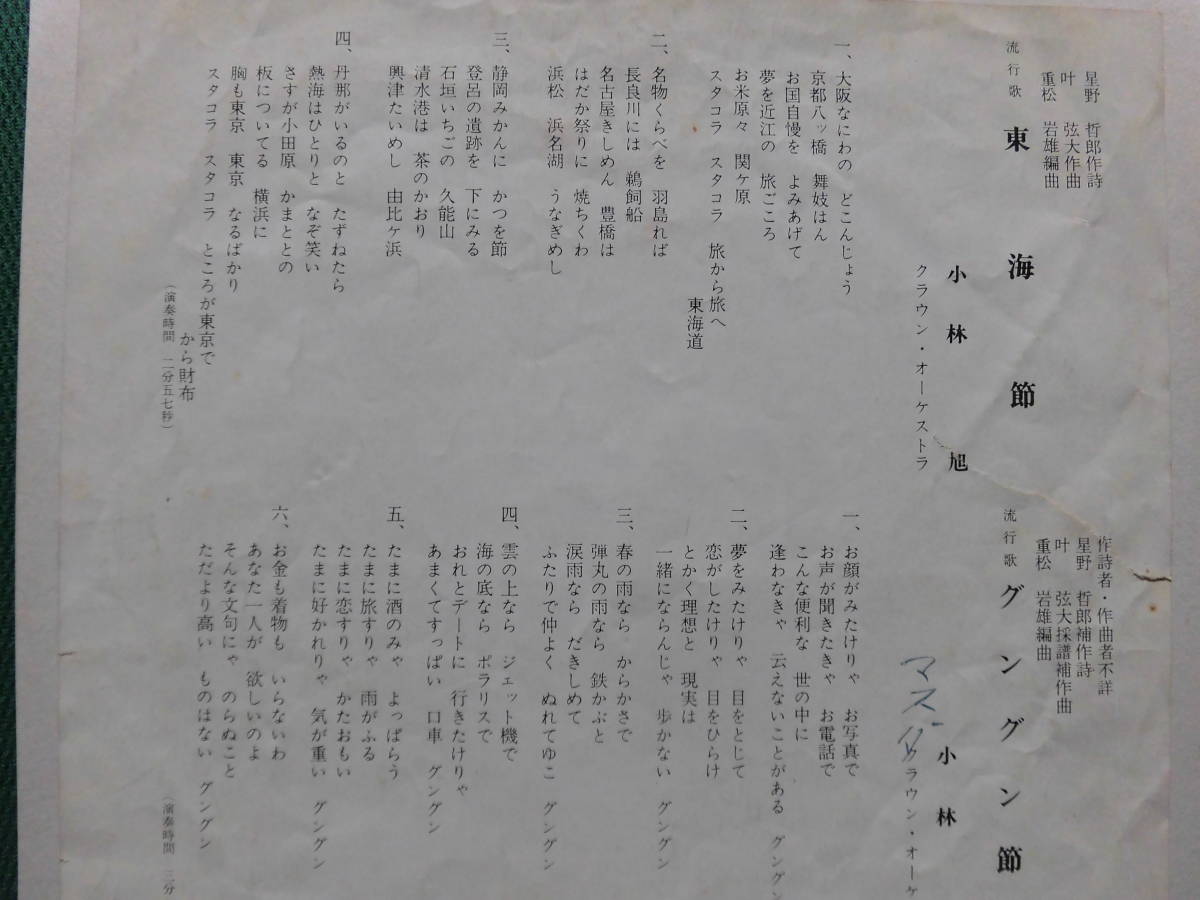 星野　哲郎作詩
叶　弦大作曲
重松　岩雄編曲
流行歌　東海節
小林旭
クラウン・オーケストラ
一、大阪なにわの　どこんじょう
京都八ッ橋　舞妓はん
お国自慢を　よみあげて
夢を近江の　旅ごころ
お米原々　関ケ原
スタコラ　スタコラ　旅から旅へ
東海道
二、名物くらべを　羽島れば
長良川には　鵜飼船
名古屋きしめん　豊橋は
はだか祭りに　焼ちくわ
浜松　浜名湖　うなぎめし
三、静岡みかんに　かつを節
登呂の遺跡を　下にみる
石垣いちごの　久能山
清水港は　茶のかおり
興津たいめし　由比ヶ浜
四、丹那がいるのと　たずねたら
熱海はひとりと　なぞ笑い
さすが小田原　かまととの
板についてる　横浜に
胸も東京　東京　なるばかり
スタコラ　スタコラ　ところが東京で
から財布
（演奏時間　二分五七秒）
作詩者・作曲者不詳
星野　哲郎補作詩
叶　弦大採譜補作曲
重松　岩雄編曲
流行歌　グングン節
小林
マスダ
クラウン・オーケ
一、お顔がみたけりゃ　お写真で
お声が聞きたきゃ　お電話で
こんな便利な　世の中に
逢わなきゃ　云えないことがある　グング
二、夢をみたけりゃ　目をとじて
恋がしたけりゃ　目をひらけ
とかく理想と　現実は
一緒にならんじゃ　歩かない　グングン
三、春の雨なら　からかさで
弾丸の雨なら　鉄かぶと
涙雨なら　だきしめて
ふたりで仲よく　ぬれてゆこ　グングン
四、雲の上なら　ジェット機で
海の底なら　ポラリスで
おれとデートに　行きたけりゃ
あまくてすっぱい　口車　グングン
五、たまに酒のみゃ　よっぱらう
たまに旅すりゃ　雨がふる
たまに恋すりゃ　かたおもい
たまに好かれりゃ　気が重い　グングン
六、お金も着物も　いらないわ
あなた一人が　欲しいのよ
そんな文句にゃ　のらぬこと
ただより高い　ものはない　グングン
（演奏時間　三分